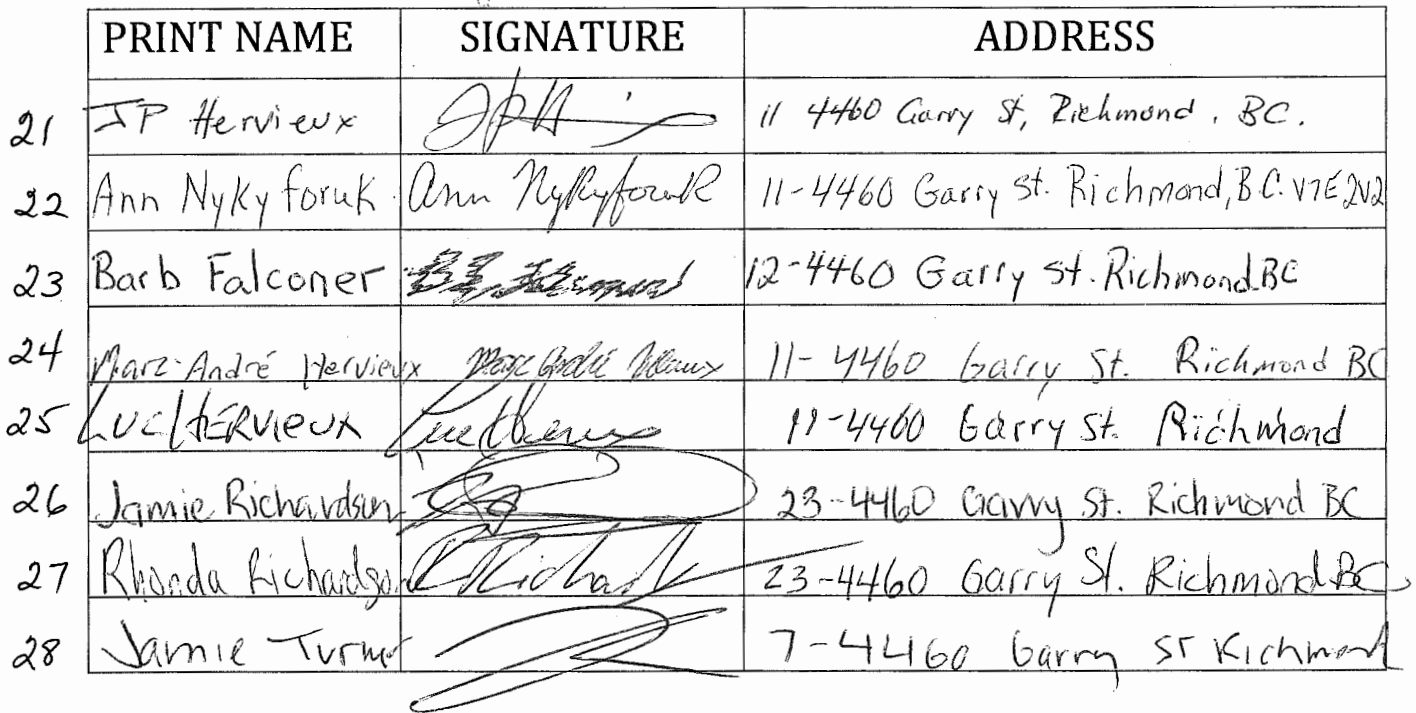 PRINT NAME SIGNATURE ADDRESS
21 JP Hervieux 11 4460 Garry St, Richmond, BC.
22 Ann Nykyforuk Ann Nykyforuk 11-4460 Garry St. Richmond, B.C. V7E 2V2
23 Barb Falconer 12-4460 Garry St. Richmond BC
24 Marc-André Hervieux Marc André 11-4460 Garry St. Richmond BC
25 Luc HERVIEUX 11-4460 Garry St. Richmond
26 Jamie Richardson 23-4460 Garry St. Richmond BC
27 Rhonda Richardson 23-4460 Garry St. Richmond BC
28 Jamie Turner 7-4460 Garry ST Richmond